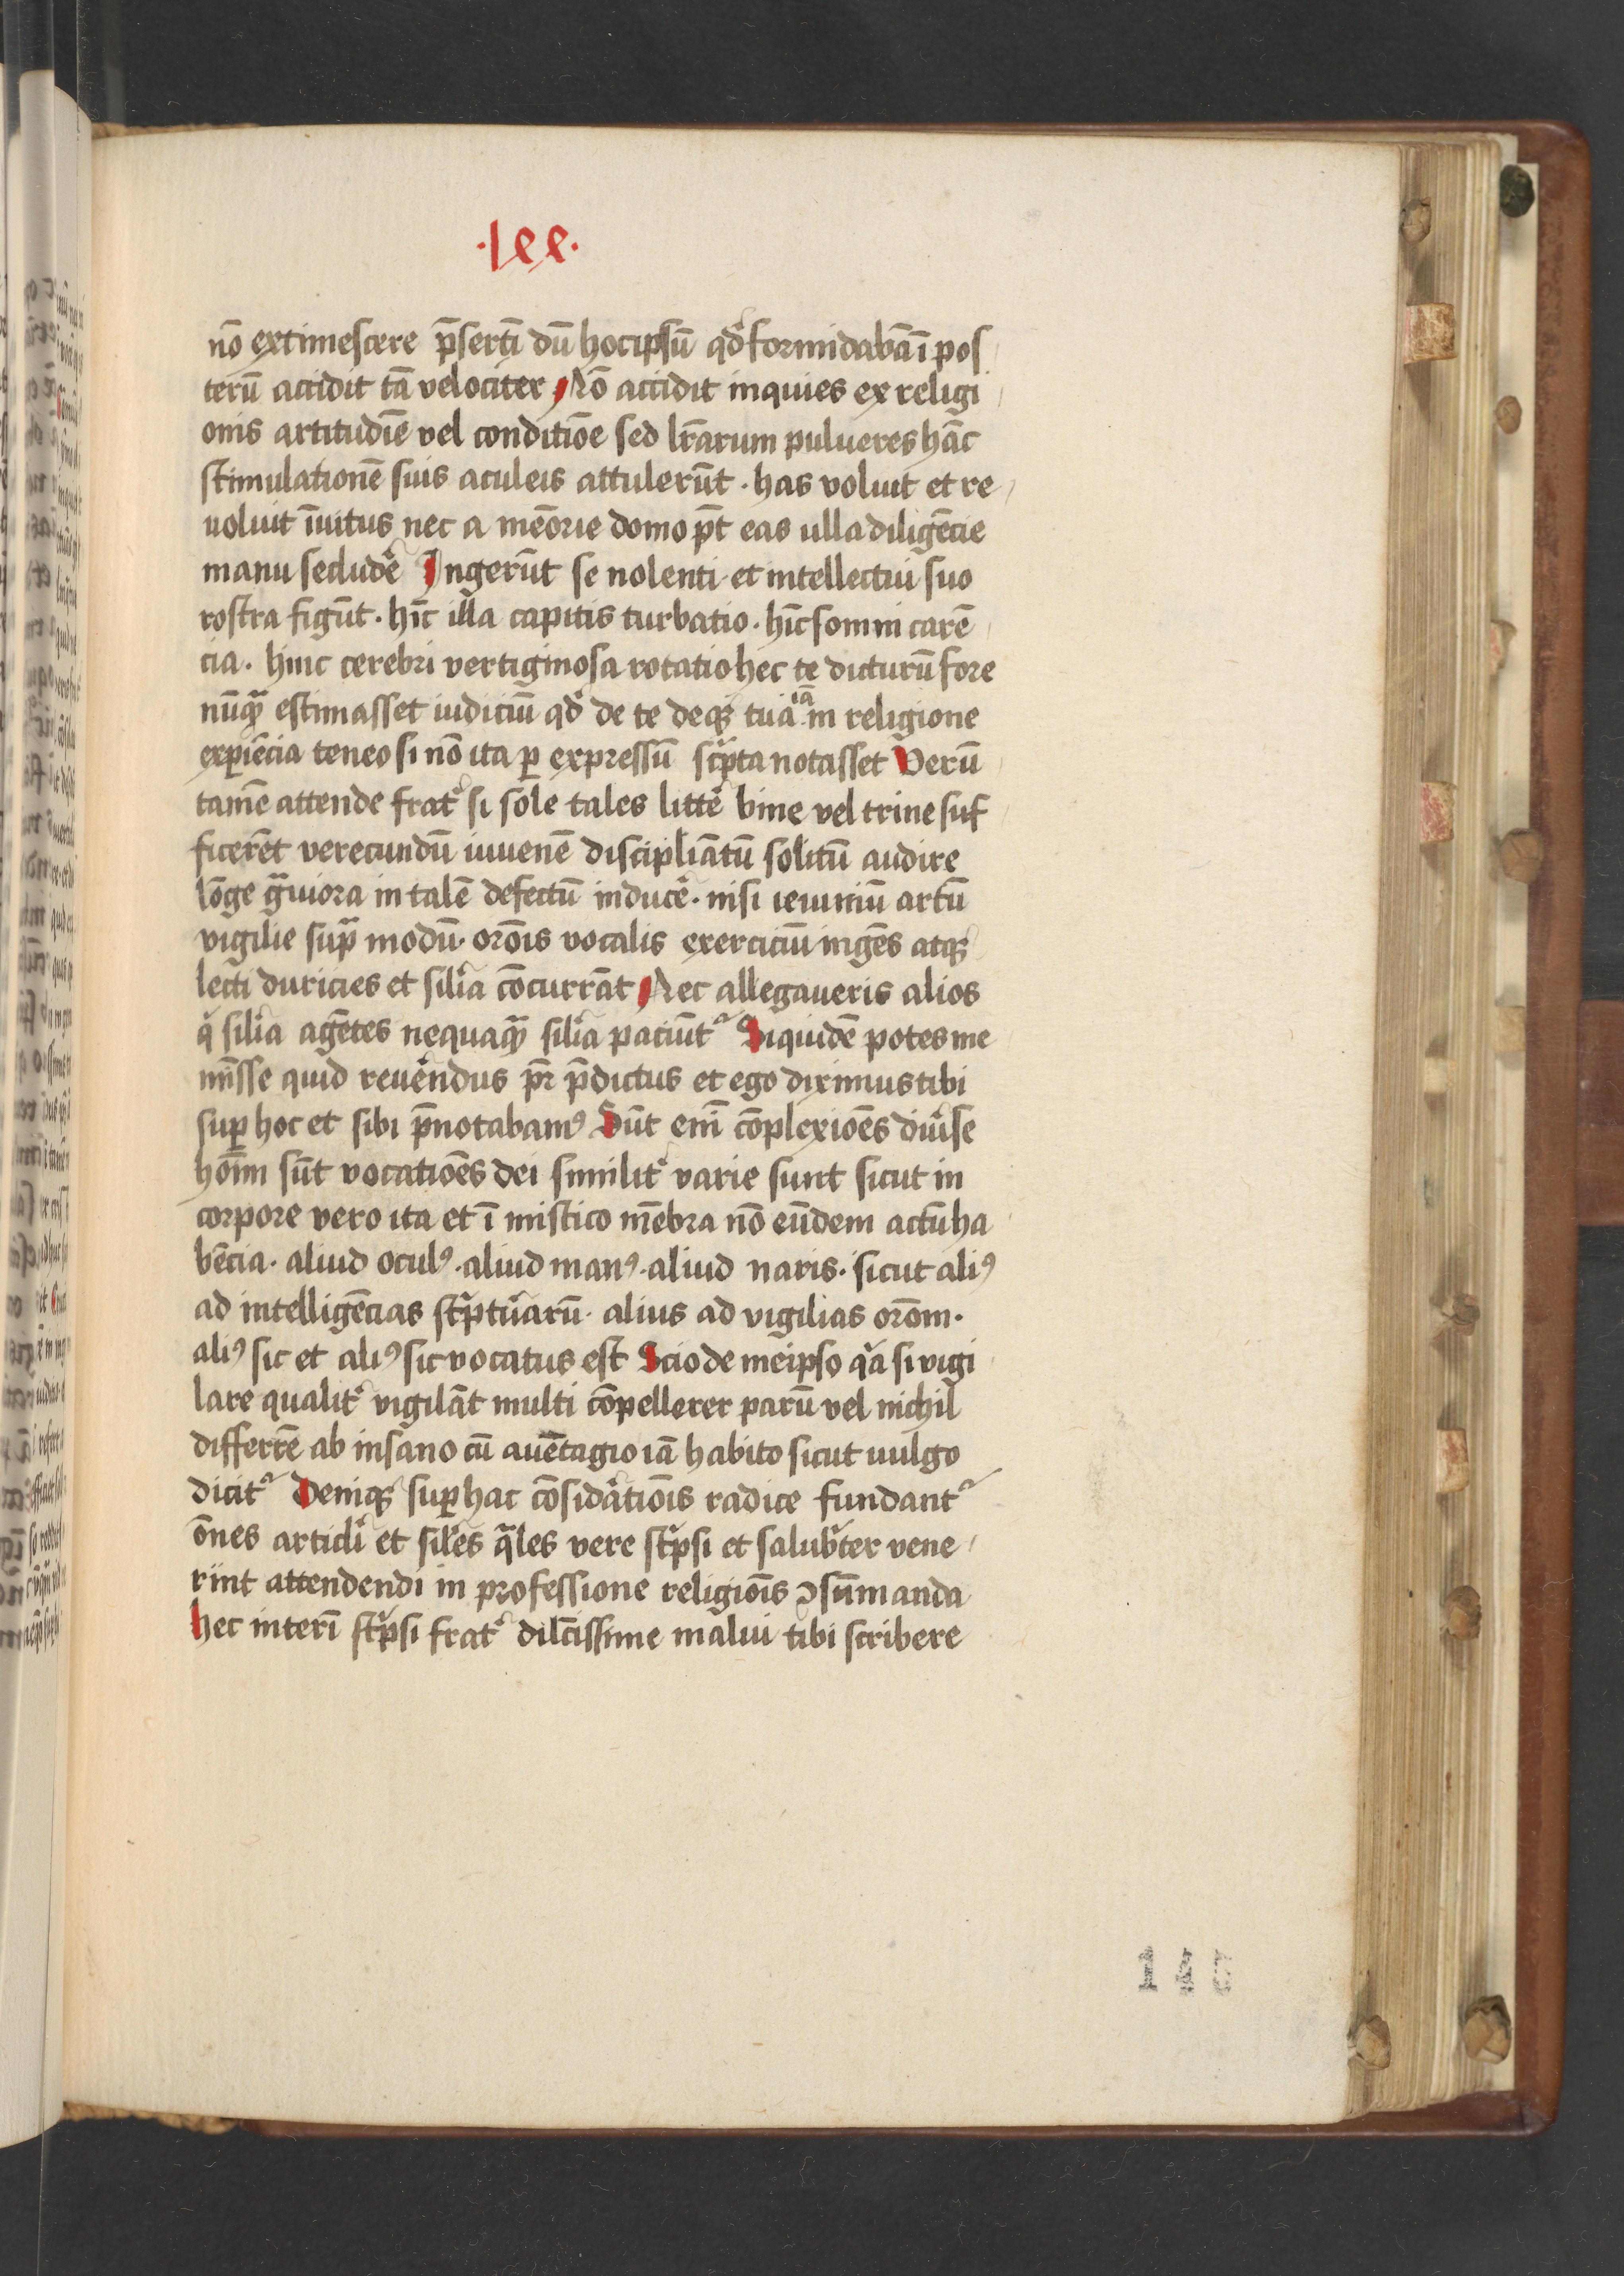 ·lxx·
nō extimescere p̄sertī dū hocipsū qđ formidabā ī pos
terū accidit tā velociter Nō accidit inquies ex religi
onis artitudīe vel conditiōe sed lr̄arum pulueres hāc
stimulationē suis aculeis attulerūt · has voluit et re
uoluit īuitus nec a mēorie domo pt̄ eas ulla diligēcie
manu secludē Ingerūt se nolenti et intellectui suo
rostra figūt · hīc illa capitis turbatio · hīc somni carē
cia · hinc cerebri vertiginosa rotatio hec te dicturū fore
nūqᷓ estimasset iudiciū qđ de te deqꝫ tua iā in religione
exꝑiēcia teneo si nō ita ꝑ expressū scͥpta notasset Verū
tamē attende frat͛ si sole tales litte͛ bine vel trine suf
ficerēt verecundū iuuenē discipliātū solitū audire
lōge gᷓuiora in talē defectū induce͛ · nisi ieiuniū artū
vigilie supᷓ modū · orōis vocalis exerciciū ingēs atqꝫ
lecti duricies et sil͛ia cōcurrāt Nec allegaueris alios
qͥ sil͛ia agētes nequaqᷓ sil͛ia paciūtᷣ Siquidē potes me
minīsse quid reue͛ndus pr̄ p̄dictus et ego diximus tibi
suꝑ hoc et sibi p̄notabamꝰ Sūt enī cōplexiōes diu͛se
hōīm sūt vocatiōes dei similit͛ varie sunt sicut in
corpore vero ita et ī mistico mēbra nō eūdem actū ha
bēcia · aliud oculꝰ · aliud manꝰ · aliud naris · sicut aliꝰ
ad intelligēcias scͥptu͛arū · alius ad vigilias orōm ·
aliꝰ sic et aliꝰ sic vocatus est Scio de meipso qᷓ si vigi
lare qualit͛ vigilāt multi cōpellerer parū vel nichil
differrē ab insano cū auētagio iā habito sicut uulgo
dicitᷣ Deniqꝫ suꝑ hac cōsid͛atiōis radice fundantᷣ
ōnes articli͛ et sil͛es qᷓles vere scͥpsi et salubͥter vene
rint attendendi in professione religiōis ꝯsūmanda
hec interī scͥpsi frat͛ dilc̄issime malui tibi scribere